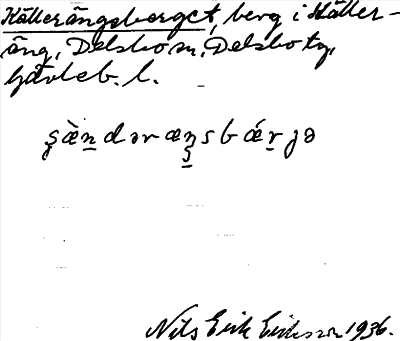 Källerängsberget, berg i Käller-
äng, Delsbo sn, Delsbo tg,
Gävleb. l.
ʂæ̀n̲dəræŋsbǽr̲jə
Nils Erik Eriksson 1936.